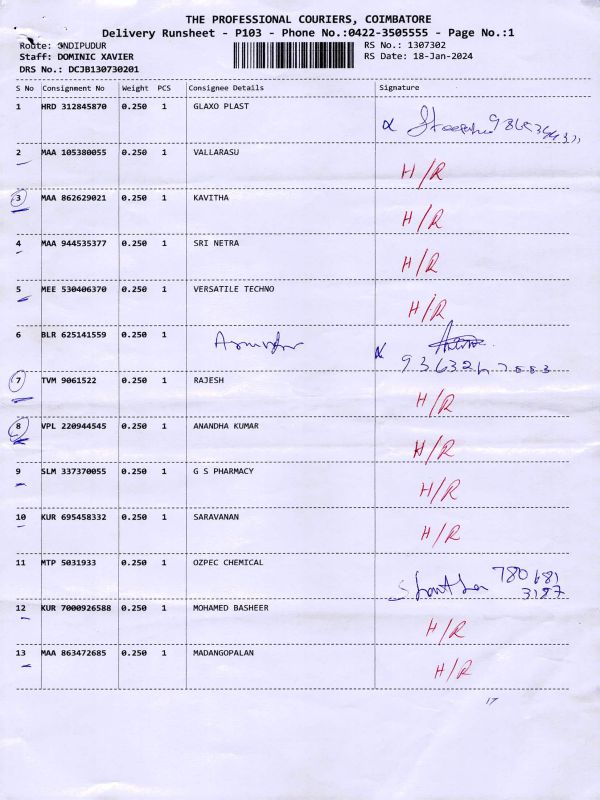 THE PROFESSIONAL COURIERS, COIMBATORE
Delivery Runsheet - P103 - Phone No.:0422-3505555 - Page No.:1
Route: ONDIPUDUR RS No.: 1307302
Staff: DOMINIC XAVIER RS Date: 18-Jan-2024
DRS No.: DCJB130730201
S No Consignment No Weight PCS Consignee Details Signature
1 HRD 312845870 0.250 1 GLAXO PLAST
2 MAA 105380055 0.250 1 VALLARASU H/R
3 MAA 862629021 0.250 1 KAVITHA H/R
4 MAA 944535377 0.250 1 SRI NETRA H/R
5 MEE 530406370 0.250 1 VERSATILE TECHNO H/R
6 BLR 625141559 0.250 1
7 TVM 9061522 0.250 1 RAJESH H/R
8 VPL 220944545 0.250 1 ANANDHA KUMAR H/R
9 SLM 337370055 0.250 1 G S PHARMACY H/R
10 KUR 695458332 0.250 1 SARAVANAN H/R
11 MTP 5031933 0.250 1 OZPEC CHEMICAL Shantha 780 681
3187
12 KUR 7000926588 0.250 1 MOHAMED BASHEER H/R
13 MAA 863472685 0.250 1 MADANGOPALAN H/R
17